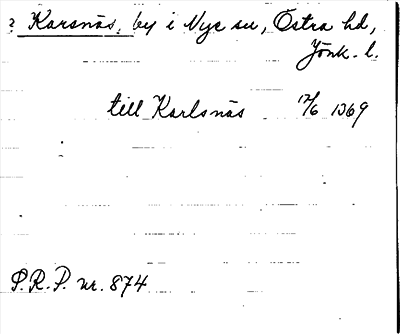 ? Karsnäs, by i Nye sn, Östra hd,
Jönk. l.
till Karlsnäs 12/6 1369
P.R.P. nr. 874